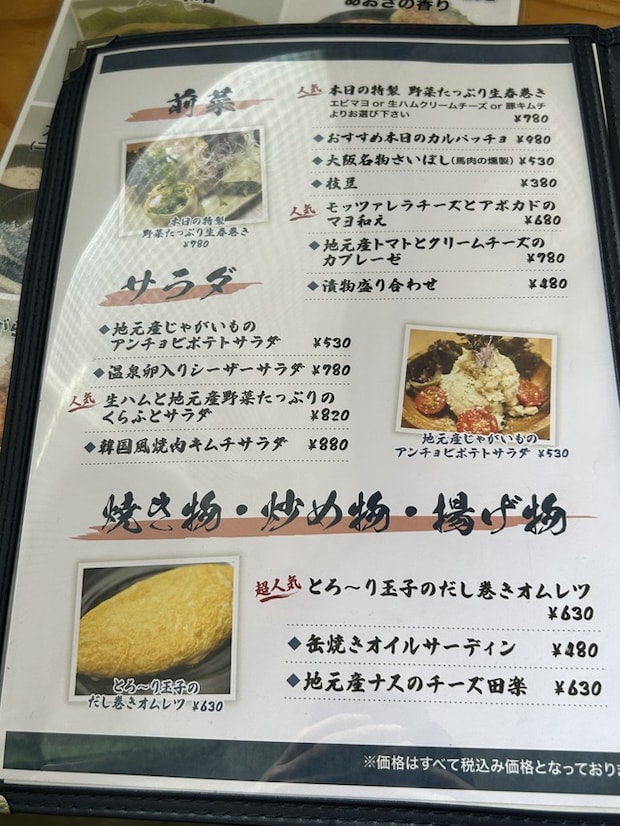 あおさの香り
前菜
本日の特製
野菜たっぷり生春巻き
¥780
人気 本日の特製 野菜たっぷり生春巻き
エビマヨ or 生ハムクリームチーズ or 豚キムチ
よりお選び下さい
¥780
◆おすすめ本日のカルパッチョ ¥980
◆大阪名物さいぼし(馬肉の燻製) ¥530
◆枝豆 ¥380
人気 モッツァレラチーズとアボカドの
マヨ和え ¥680
◆地元産トマトとクリームチーズの
カプレーゼ ¥780
◆漬物盛り合わせ ¥480
サラダ
◆地元産じゃがいもの
アンチョビポテトサラダ ¥530
◆温泉卵入りシーザーサラダ ¥780
人気 生ハムと地元産野菜たっぷりの
くらふとサラダ ¥820
◆韓国風焼肉キムチサラダ ¥880
地元産じゃがいもの
アンチョビポテトサラダ ¥530
焼き物・炒め物・揚げ物
とろ～り玉子の
だし巻きオムレツ ¥630
超人気 とろ～り玉子のだし巻きオムレツ
¥630
◆缶焼きオイルサーディン ¥480
◆地元産ナスのチーズ田楽 ¥630
※価格はすべて税込み価格となっており